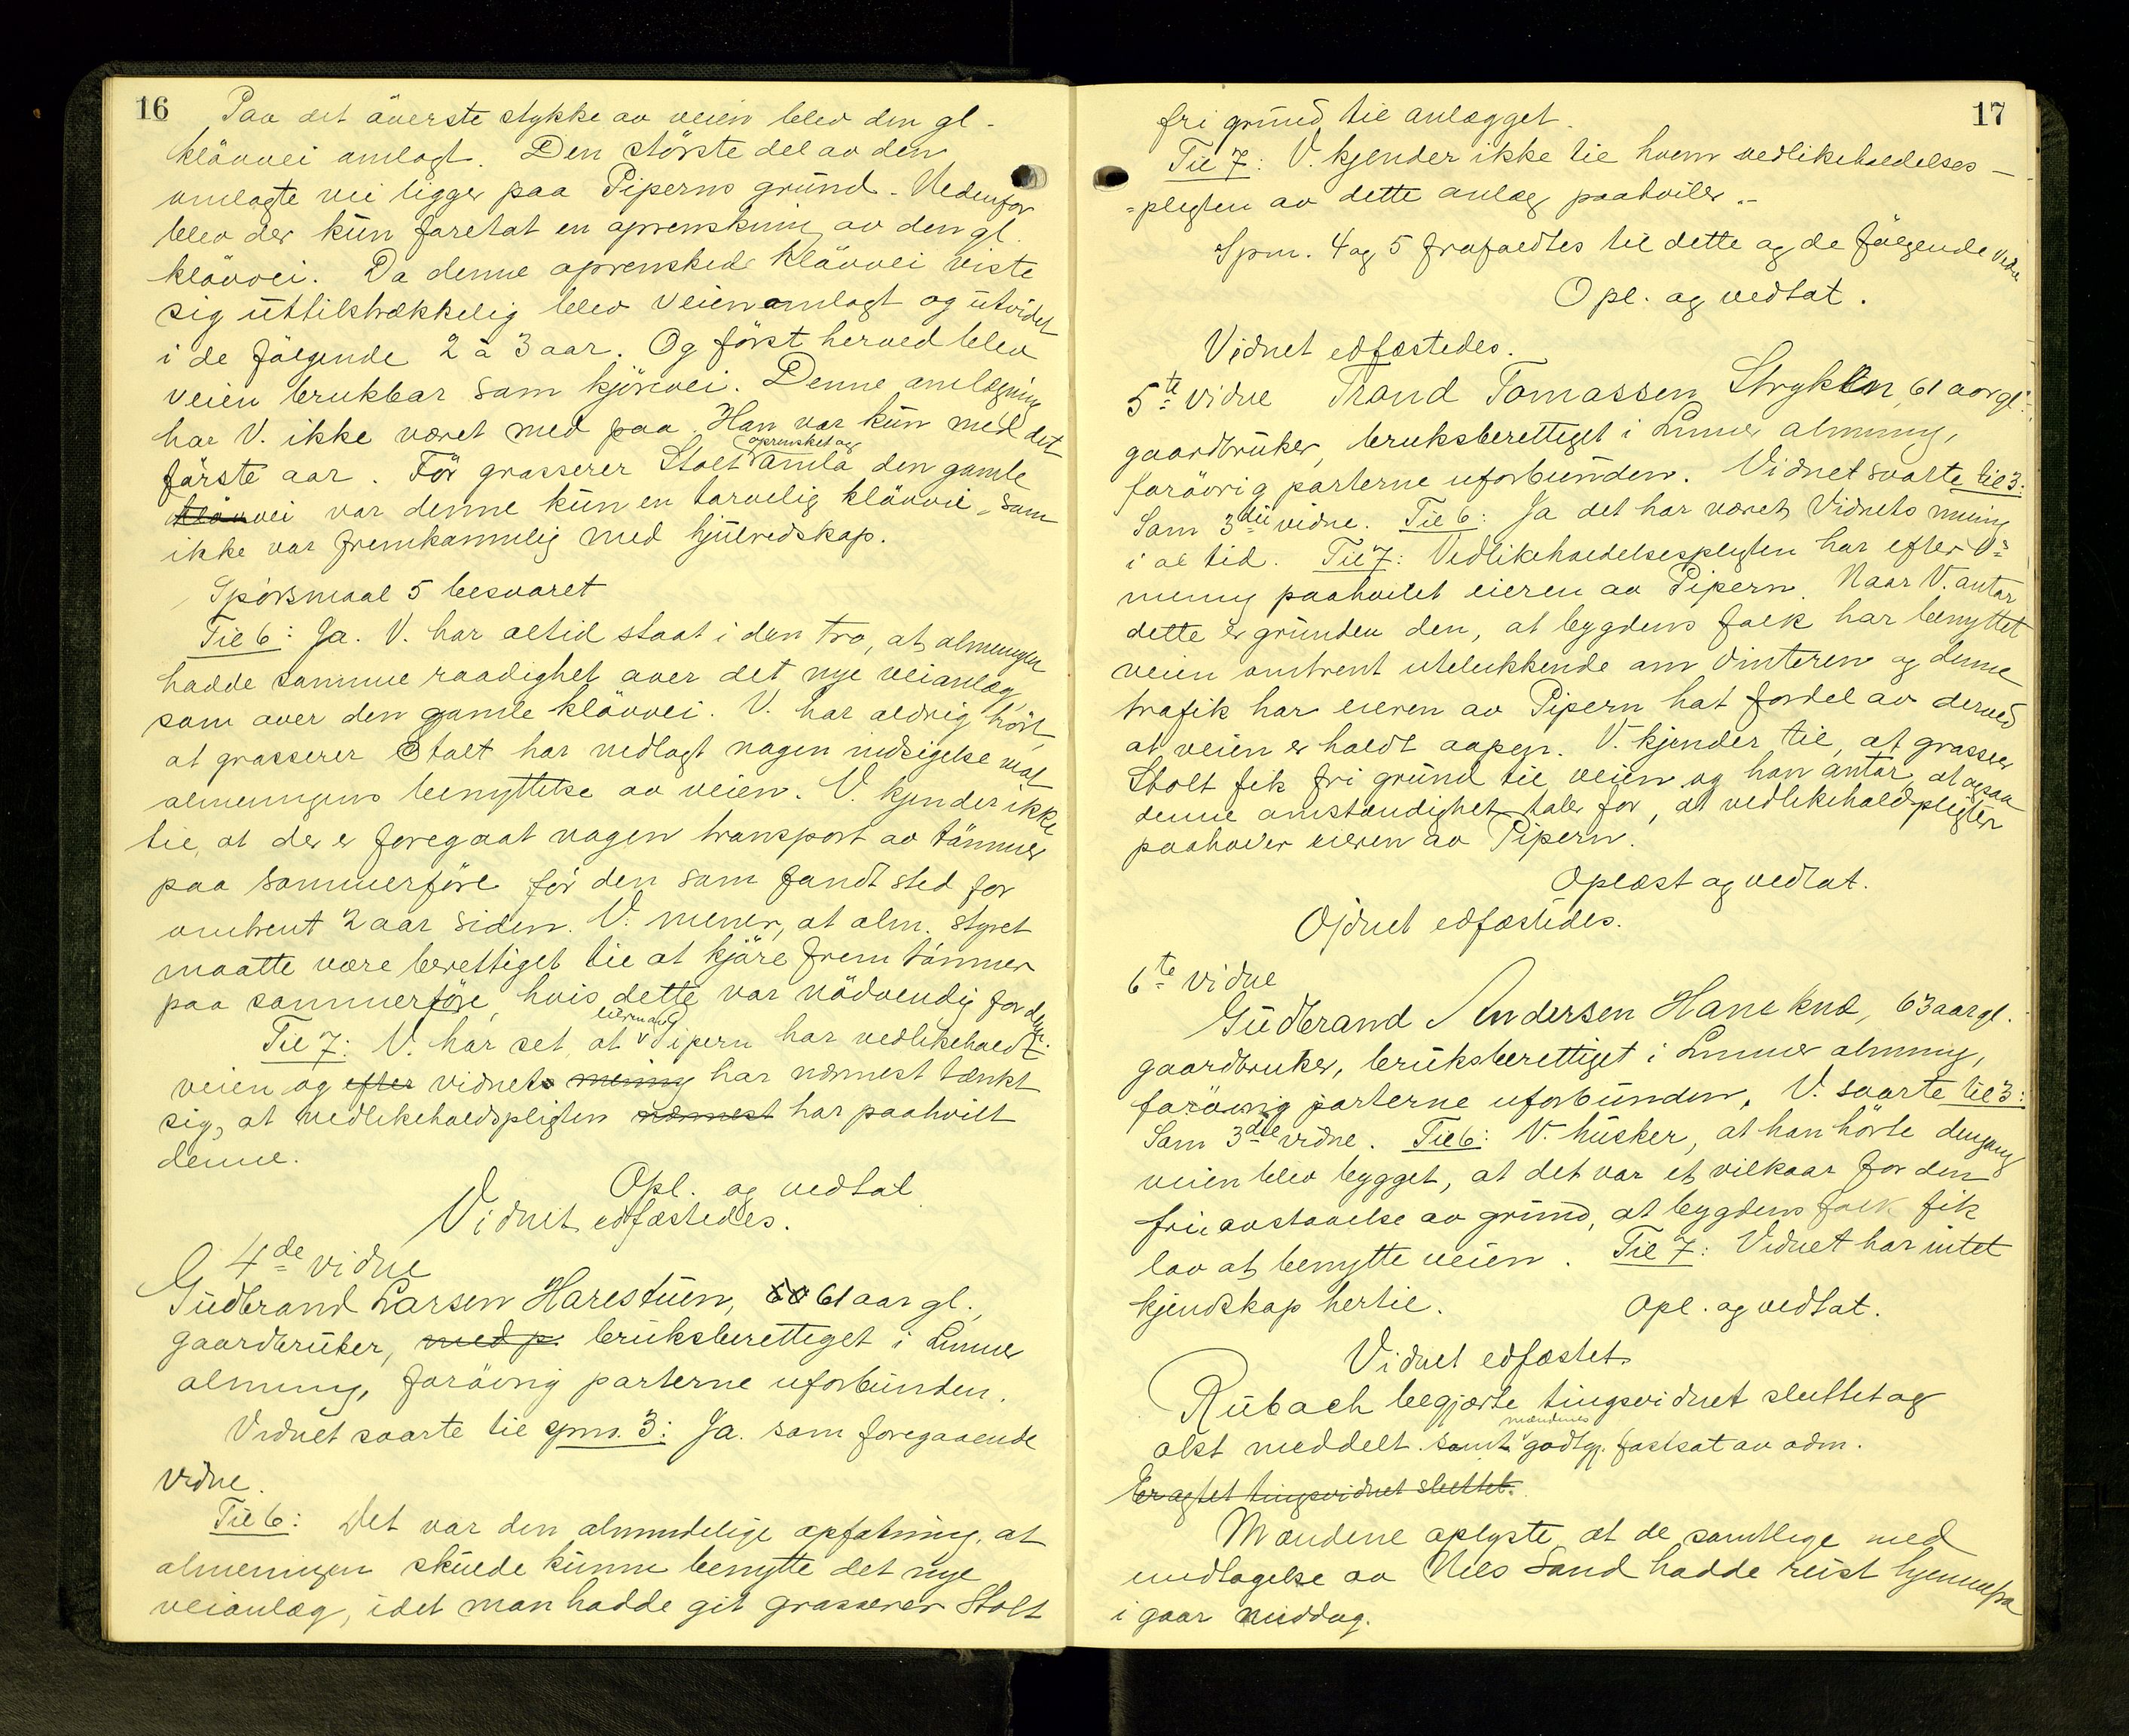 16
Paa det överste stykke av veien blev den gl.
klövvei omlagt. Den störste del av den
omlagte vei ligger paa Piperns grund. Nedenfor
blev der kun foretat en oprenskning av den gl.
klövvei. Da denne oprenskede klövvei viste
sig utilstrækkelig blev veien omlagt og utvidet
i de fölgende 2 à 3 aar. Og först herved blev
veien brukbar som kjörevei. Denne omlægning
har V. ikke været med paa. Han var kun med det
oprensket og
förste aar. För grosserer Stolt omla den gamle
klövvei var denne kun en tarvelig klövvei, som
ikke var fremkommelig med hjulredskap.
Spörsmaal 5 besvaret
Til 6: Ja. V. har altid staat i den tro, at almenningen
hadde samme raadighet over det nye veianlæg,
som over den gamle klövvei. V. har aldrig hört,
at grosserer Stolt har nedlagt nogen indsigelse mot
almenningens benyttelse av veien. V. kjender ikke
til, at der er foregaat nogen transport av tömmer
paa sommerföre för den som fandt sted for
omtrent 2 aar siden. V. mener, at alm. styret
maatte være berettiget til at kjöre frem tömmer
paa sommerföre, hvis dette var nödvendig for den.
eieren av
Til 7: V. har set, at Pipern har vedlikeholdt
veien og efter vidnets mening har nærmest tænkt
sig, at vedlikeholdspligten nærmest har paahvilt
denne.
Opl. og vedtat
Vidnet edfæstedes.
4de vidne
Gudbrand Larsen Harestuen, 60 61 aar gl.,
gaardbruker, med p. bruksberettiget i Lunner
almenning, forövrig parterne uforbunden.
Vidnet svarte til spm. 3: Ja. som foregaaende
vidne.
Til 6: Det var den almindelige opfatning, at
almenningen skulde kunne benytte det nye
veianlæg, idet man hadde git grosserer Stolt
17
fri grund til anlægget.
Til 7: V. kjender ikke til hvem vedlikeholdelses-
=pligten av dette anlæg paahviler.-
Spm. 4 og 5 frafaldtes til dette og de fölgende vidner
Opl. og vedtat.
Vidnet edfæstedes.
5te vidne Trond Tomassen Stryken, 61 aar gl.
gaardbruker, bruksberettiget i Lunner almenning,
forövrig parterne uforbunden. Vidnet svarte til 3:
Som 3die vidne. Til 6: Ja det har været Vidnets mening
i al tid. Til 7: Vedlikeholdelsespligten har efter V:s
mening paahvilet eieren av Pipern. Naar V. antar
dette er grunden den, at bygdens folk har benyttet
veien omtrent utelukkende om vinteren og denne
trafik har eieren av Pipern hat fordel av derved
at veien er holdt aapen. V. kjender til, at grosserer
Stolt fik fri grund til veien og han antar, at ogsaa
denne omstændighet taler for, at vedlikeholdspligten
paahviler eieren av Pipern.
Oplæst og vedtat.
Vidnet edfæstedes.
6te vidne
Gudbrand Andersen Haneknæ, 63 aar gl.
gaardbruker, bruksberettiget i Lunner almenning,
forövrig parterne uforbunden. V. svarte til 3:
Som 3die vidne. Til 6: V. husker, at han hörte dengang
veien blev bygget, at det var et vilkaar for den
frie avstaaelse av grund, at bygdens folk fik
lov at benytte veien. Til 7: Vidnet har intet
kjendskap hertil. Opl. og vedtat.
Vidnet edfæstet
Rubach begjærte tingsvidnet sluttet og
mændenes
akt meddelt. samt godtgj. fastsat av adm.
Er agtet tingsvidnet sluttet.
Mændene oplyste, at de samtlige med
undtagelse av Nils Sand hadde reist hjemmefra
i gaar middag.